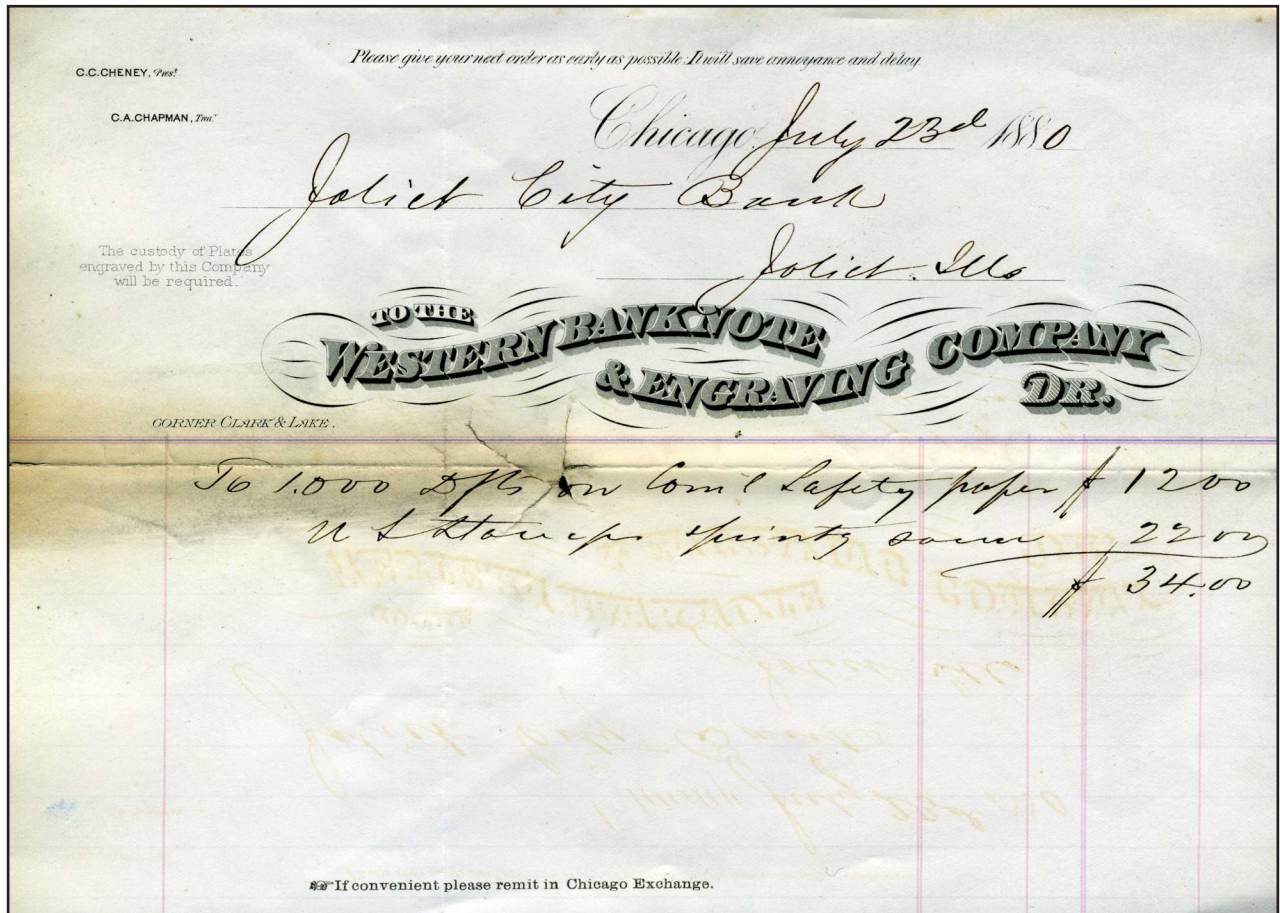 Please give your next order as early as possible: It will save annoyance and delay.
C.C. CHENEY, Prest.
C.A. CHAPMAN, Trea.r
Chicago, July 23d 1880
Joliet City Bank
Joliet. Ills
The custody of Plates
engraved by this Company
will be required.
TO THE
WESTERN BANK NOTE
& ENGRAVING COMPANY
DR.
CORNER CLARK & LAKE.
To 1.000 Dfts on Com'l Safety paper $ 12 00
U S Stamps printg same 22 00
$ 34.00
☞ If convenient please remit in Chicago Exchange.